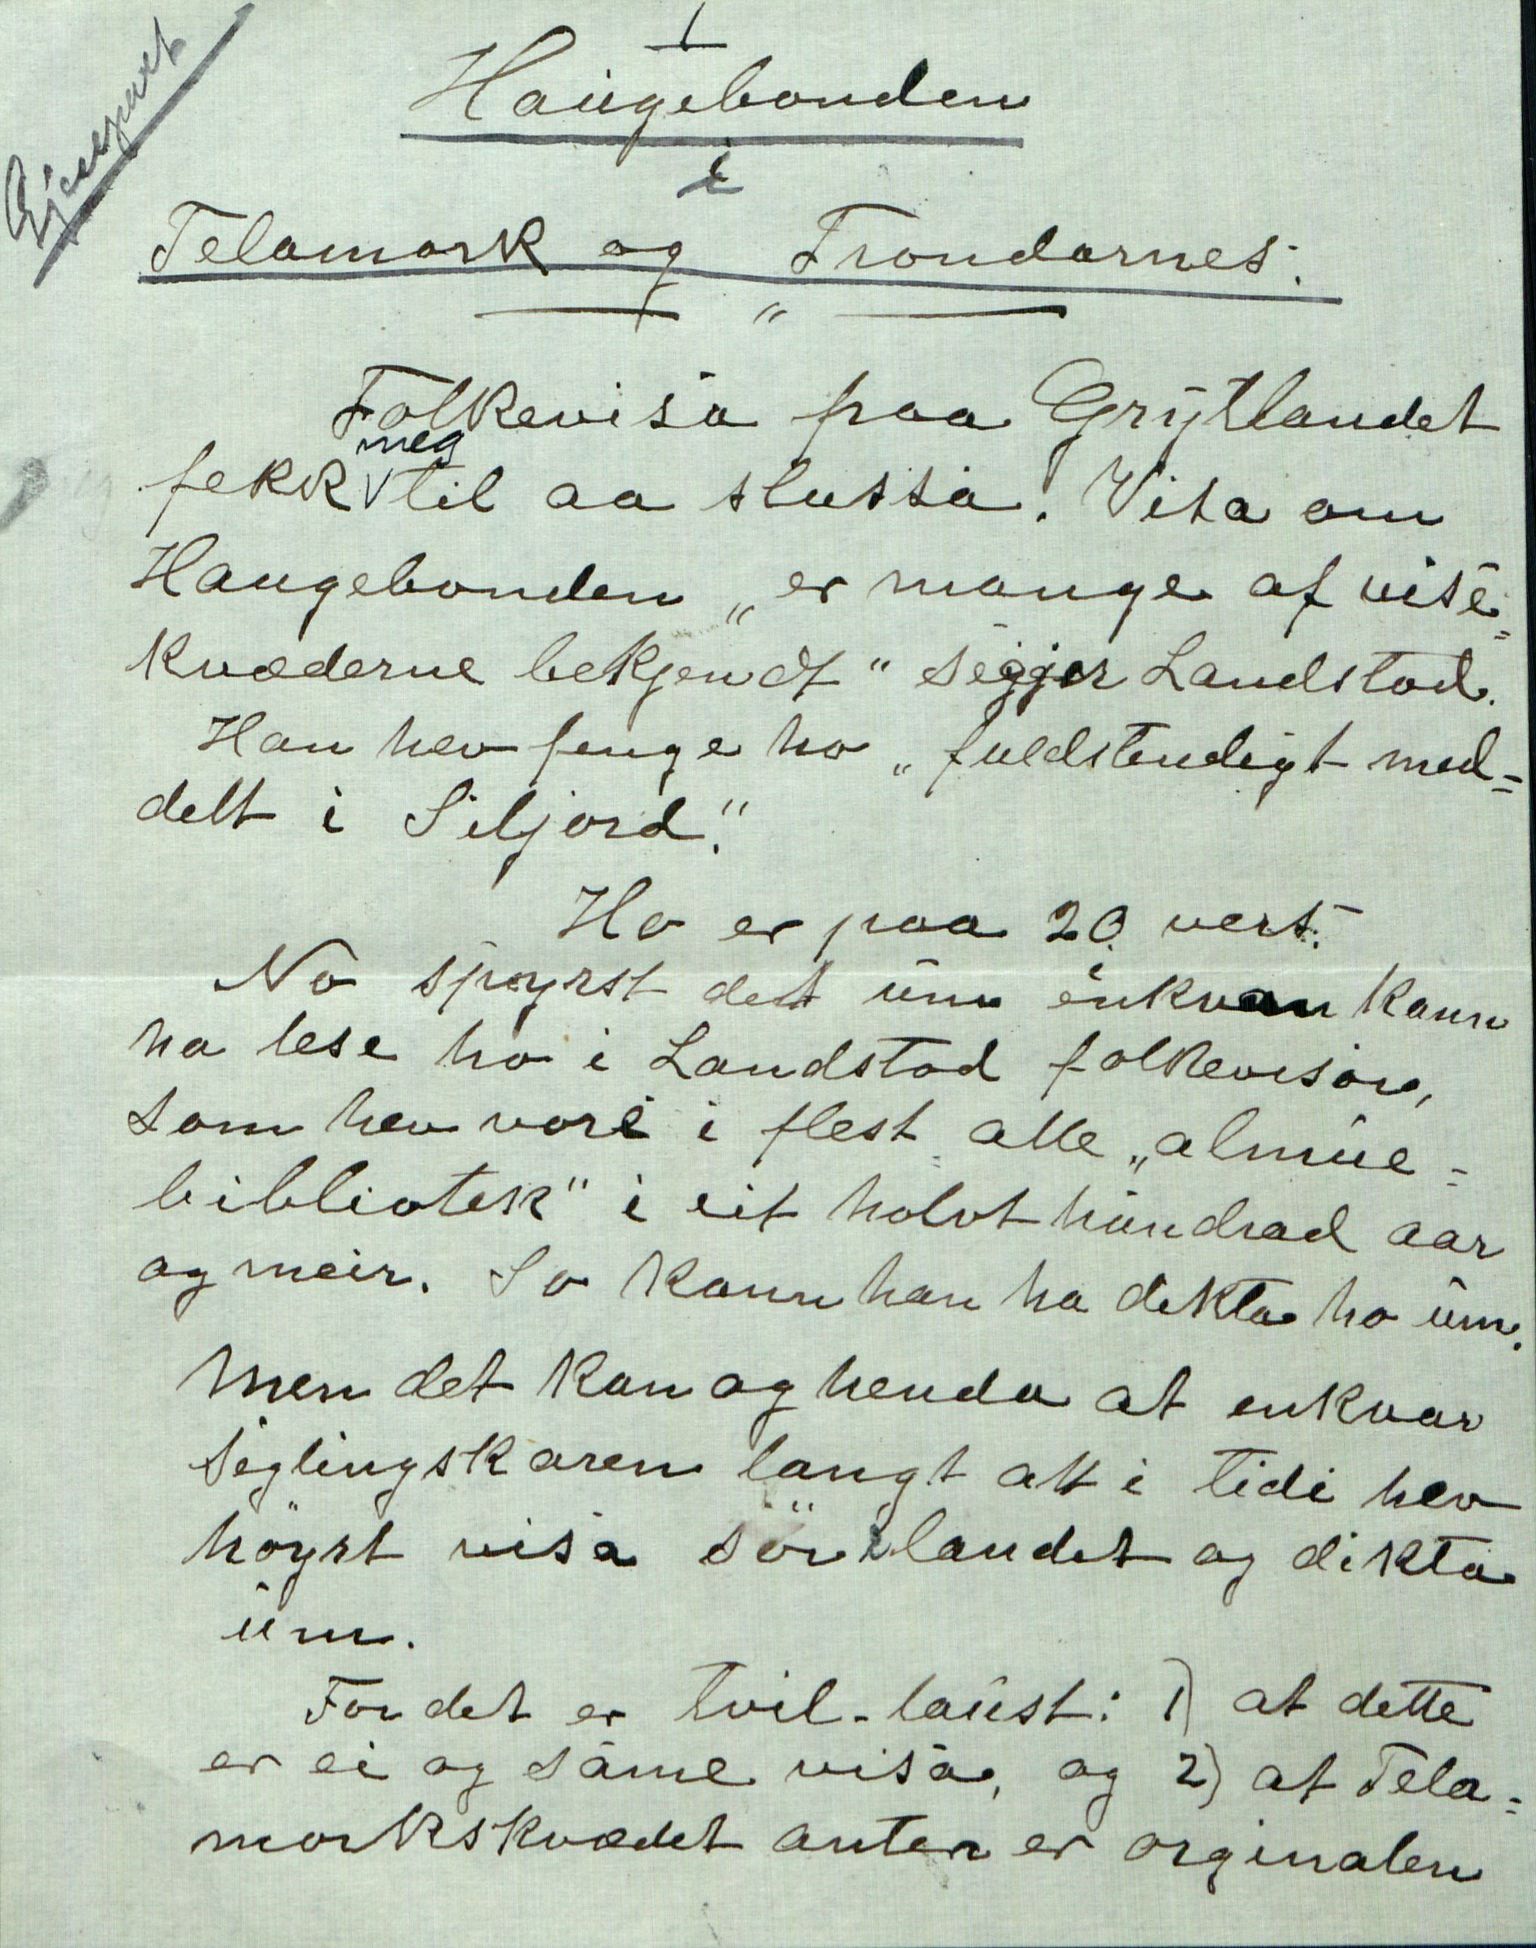 1
Haugebonden
i
Telamork og Trondarnes.
"
Folkevisa paa Grytlandet
fekk meg til aa stussa. Visa om
Haugebonden „er mange af vise-
kvæderne bekjendt" segjer Landstad.
Han hev fenge ho „fuldstendigt med-
delt i Siljord".
Ho er paa 20 vers.
No spøyrst det um einkvan kann
ha lese ho i Landstad folkevisor,
som hev vore i flest alle „almue-
bibliotek" i eit halvt hundrad aar
og meir. So kann han ha dikta ho um.
Men det kan og henda at enkvar
siglingskaren langt att i tidi hev
høyrt visa sør i landet og dikta
um.
For det er tvil-laust: 1) at dette
er ei og same visa, og 2) at Tela-
morkskvædet anten er orginalen